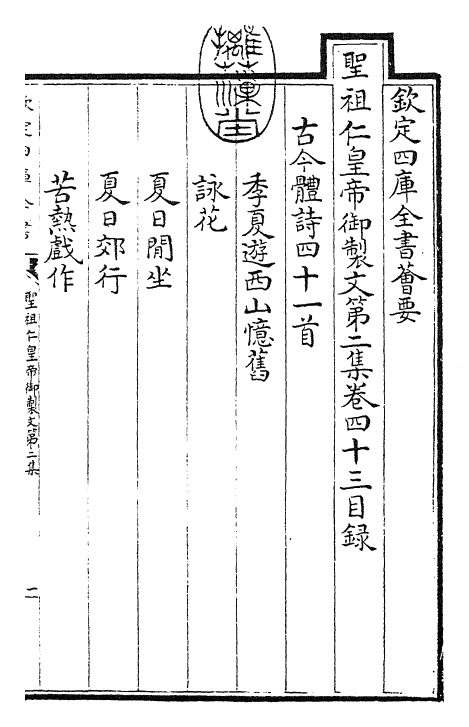 欽定四庫全書薈要
聖祖仁皇帝御製文第二集卷四十三目録
古今體詩四十一首
季夏遊西山憶舊
詠花
夏日閒坐
夏日郊行
苦熱戲作
聖祖仁皇帝御製文第二集
一
摛藻堂